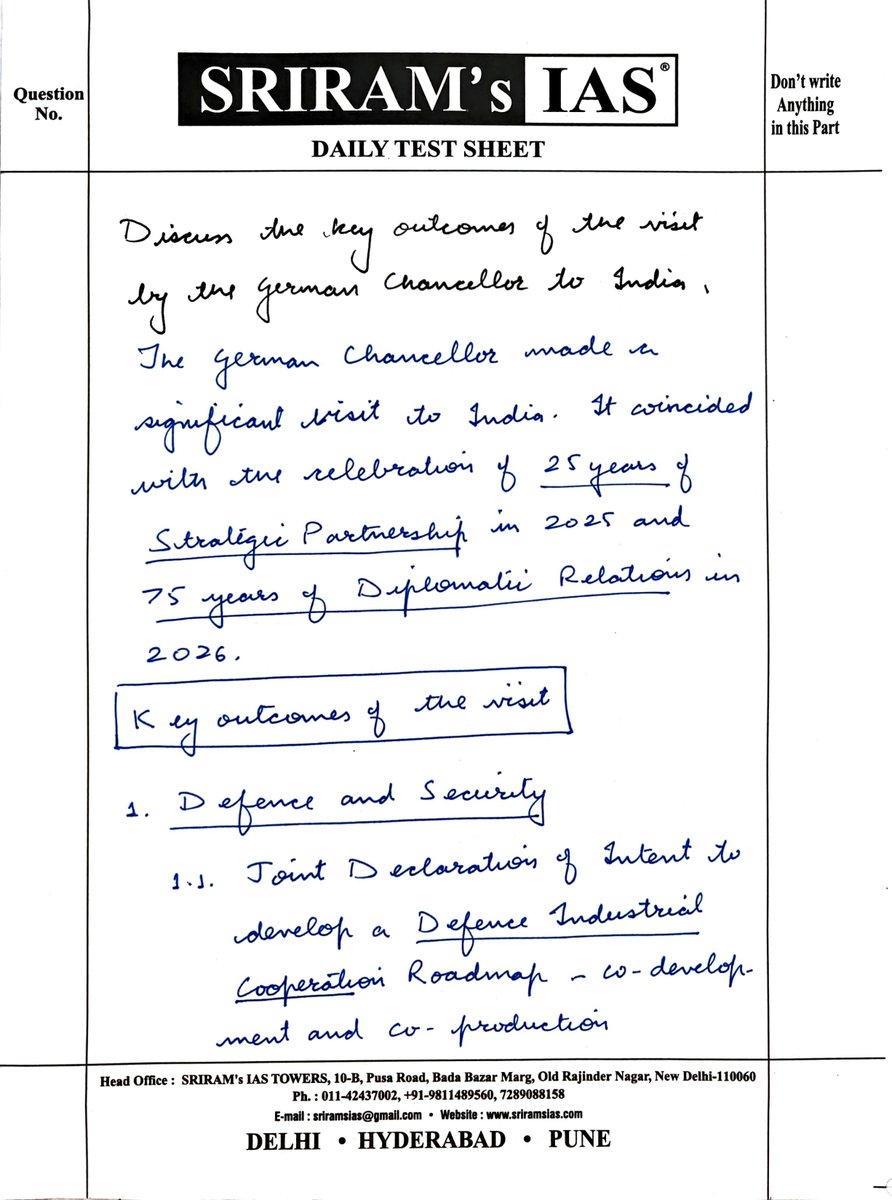 Question
No.
SRIRAM's IAS®
DAILY TEST SHEET
Don't write
Anything
in this Part
Discuss the key outcomes of the visit
by the German Chancellor to India.
The German Chancellor made a
significant visit to India. It coincided
with the celebration of 25 years of
Strategic Partnership in 2025 and
75 years of Diplomatic Relations in
2026.
Key outcomes of the visit
1. Defence and Security
1.1. Joint Declaration of Intent to
develop a Defence Industrial
Cooperation Roadmap - co-develop-
ment and co-production
Head Office : SRIRAM's IAS TOWERS, 10-B, Pusa Road, Bada Bazar Marg, Old Rajinder Nagar, New Delhi-110060
Ph. : 011-42437002, +91-9811489560, 7289088158
E-mail : sriramsias@gmail.com • Website : www.sriramsias.com
DELHI • HYDERABAD • PUNE